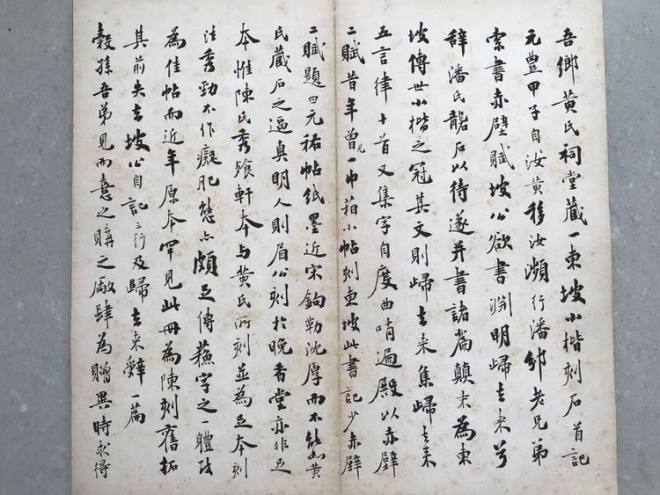 吾鄉黄氏祠堂藏一東坡小楷刻石首記
元豊甲子自汝黄移汝瀕行潘邠老兄弟
索書赤壁賦坡公欲書淵明歸去来兮
辭潘氏礲石以待遂并書諸篇顛末為東
坡傳世小楷之冠其文則歸去来集歸去来
五言律十首又集字自度曲哨遍殿以赤壁
二賦昔年曾見一巾箱小帖刻東坡此書記少赤壁
二賦題曰元祐帖紙墨近宋鉤勒沈厚而不能如黄
氏藏石之逼真明人則眉公刻於晚香堂亦非足
本惟陳氏秀餐軒本与黄氏所刻並為足本刻
法秀勁不作癡肥態亦頗足傳蘇字之一體改
為佳帖而近年原本罕見此册為陳刻舊拓
其前失去坡公自記三行及歸去来辭一篇
穀孫吾弟見而憙之購之廠肆為贈異時求得